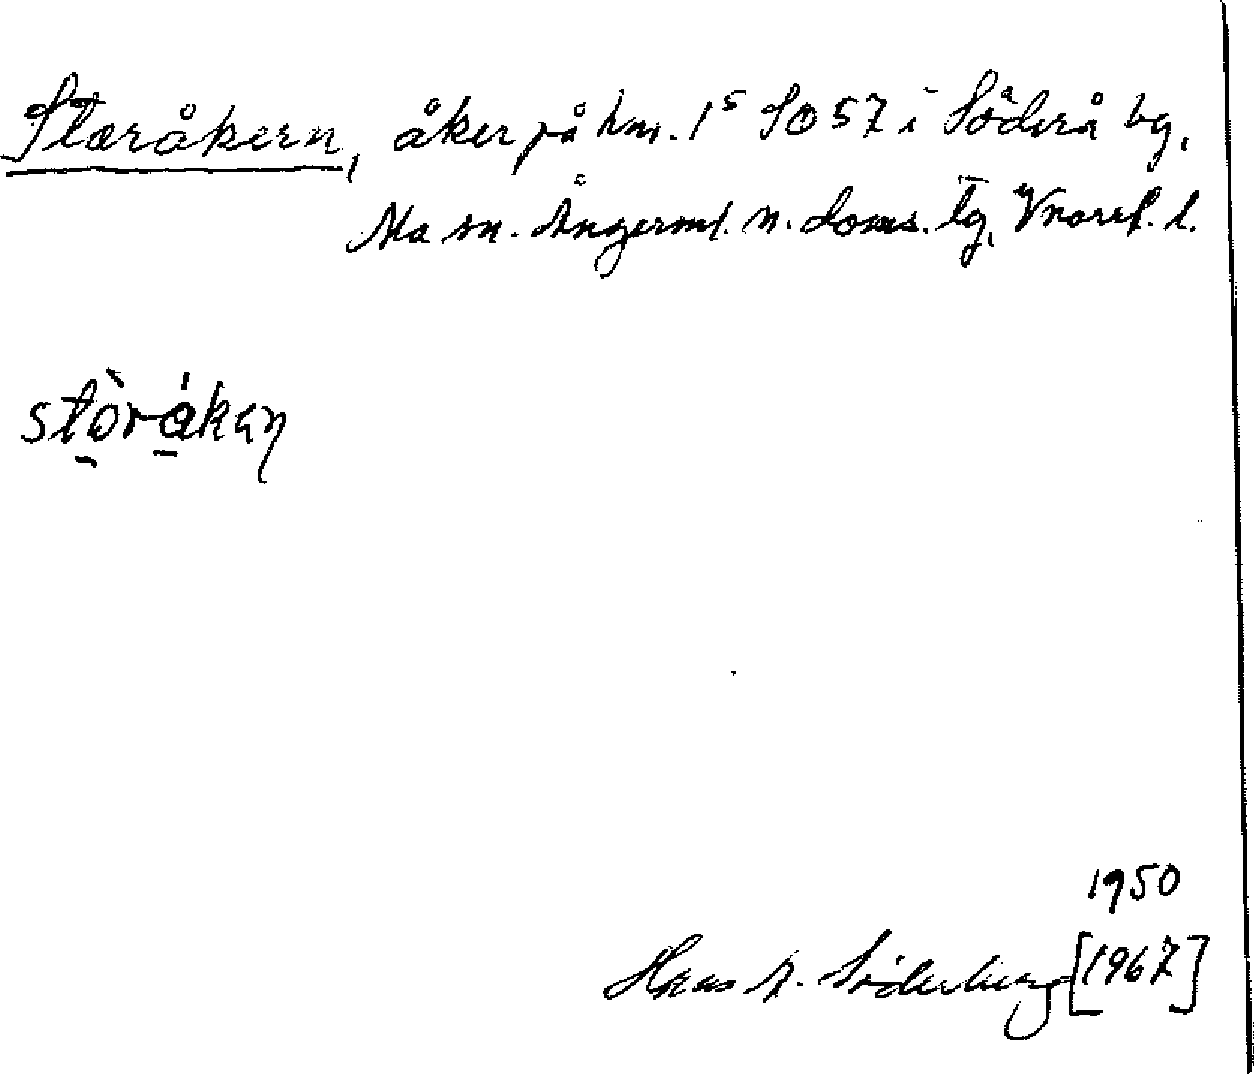 Storåkern, åker på hm. 1⁵ SO 57 i Söderå bg,
Ma sn. Ångerml. n. doms. tg, Vnorrl. l.
stòrákaṇ
1950
Hans A. Söderberg [1967]